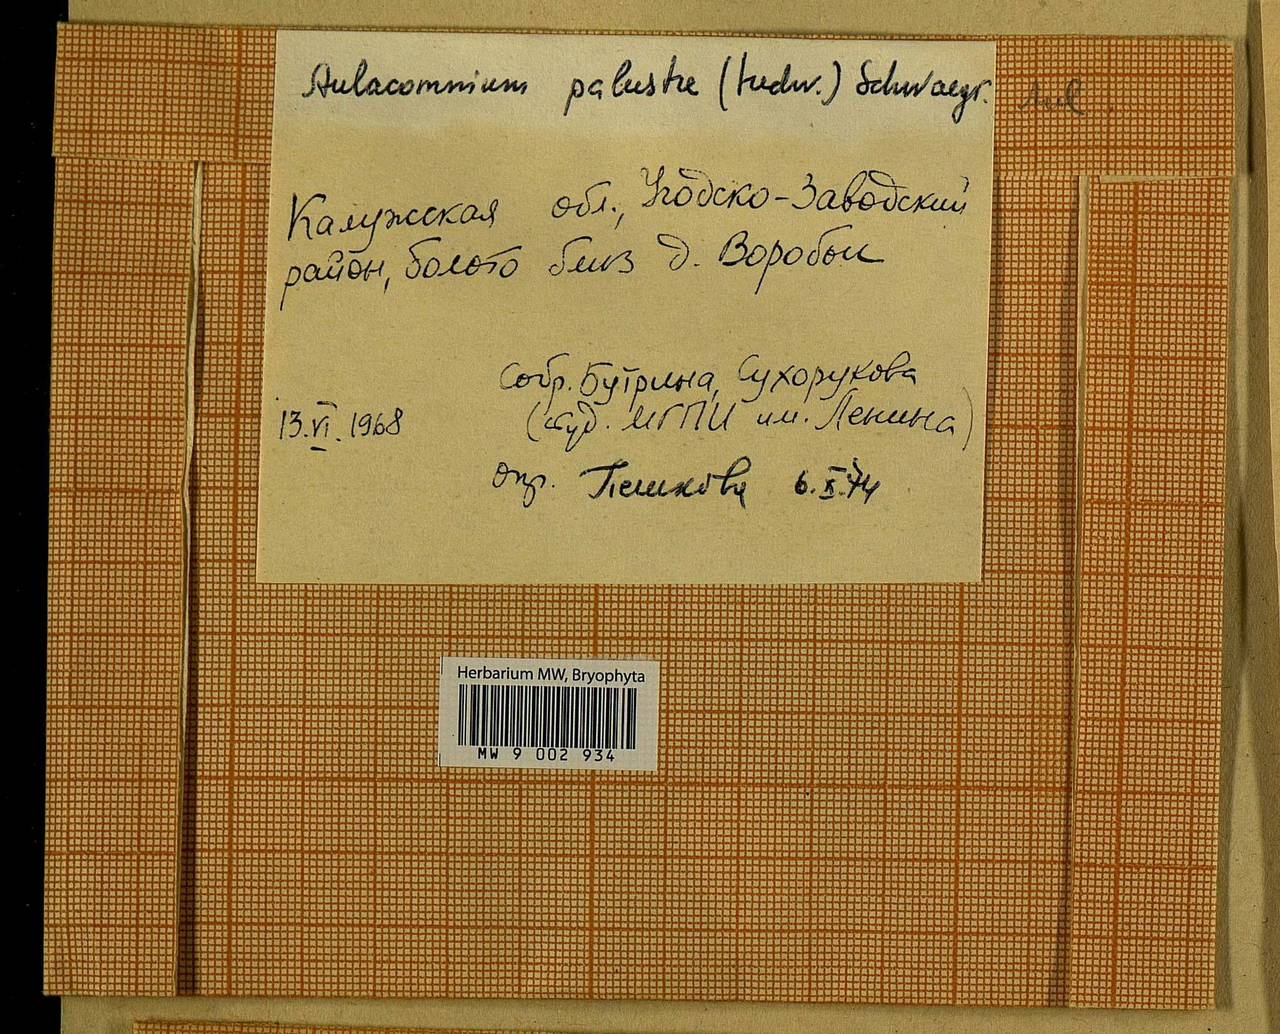 Aulacomnium palustre (Hedw.) Schwaegr.
Aul
Калужская обл., Угодско-Заводский
район, болото близ д. Воробьи
собр. Бутрина, Сухорукова
13.VI.1968 (студ. МГПИ им. Ленина)
опр. Пешкова 6.X.74
Herbarium MW, Bryophyta
MW 9 002 934